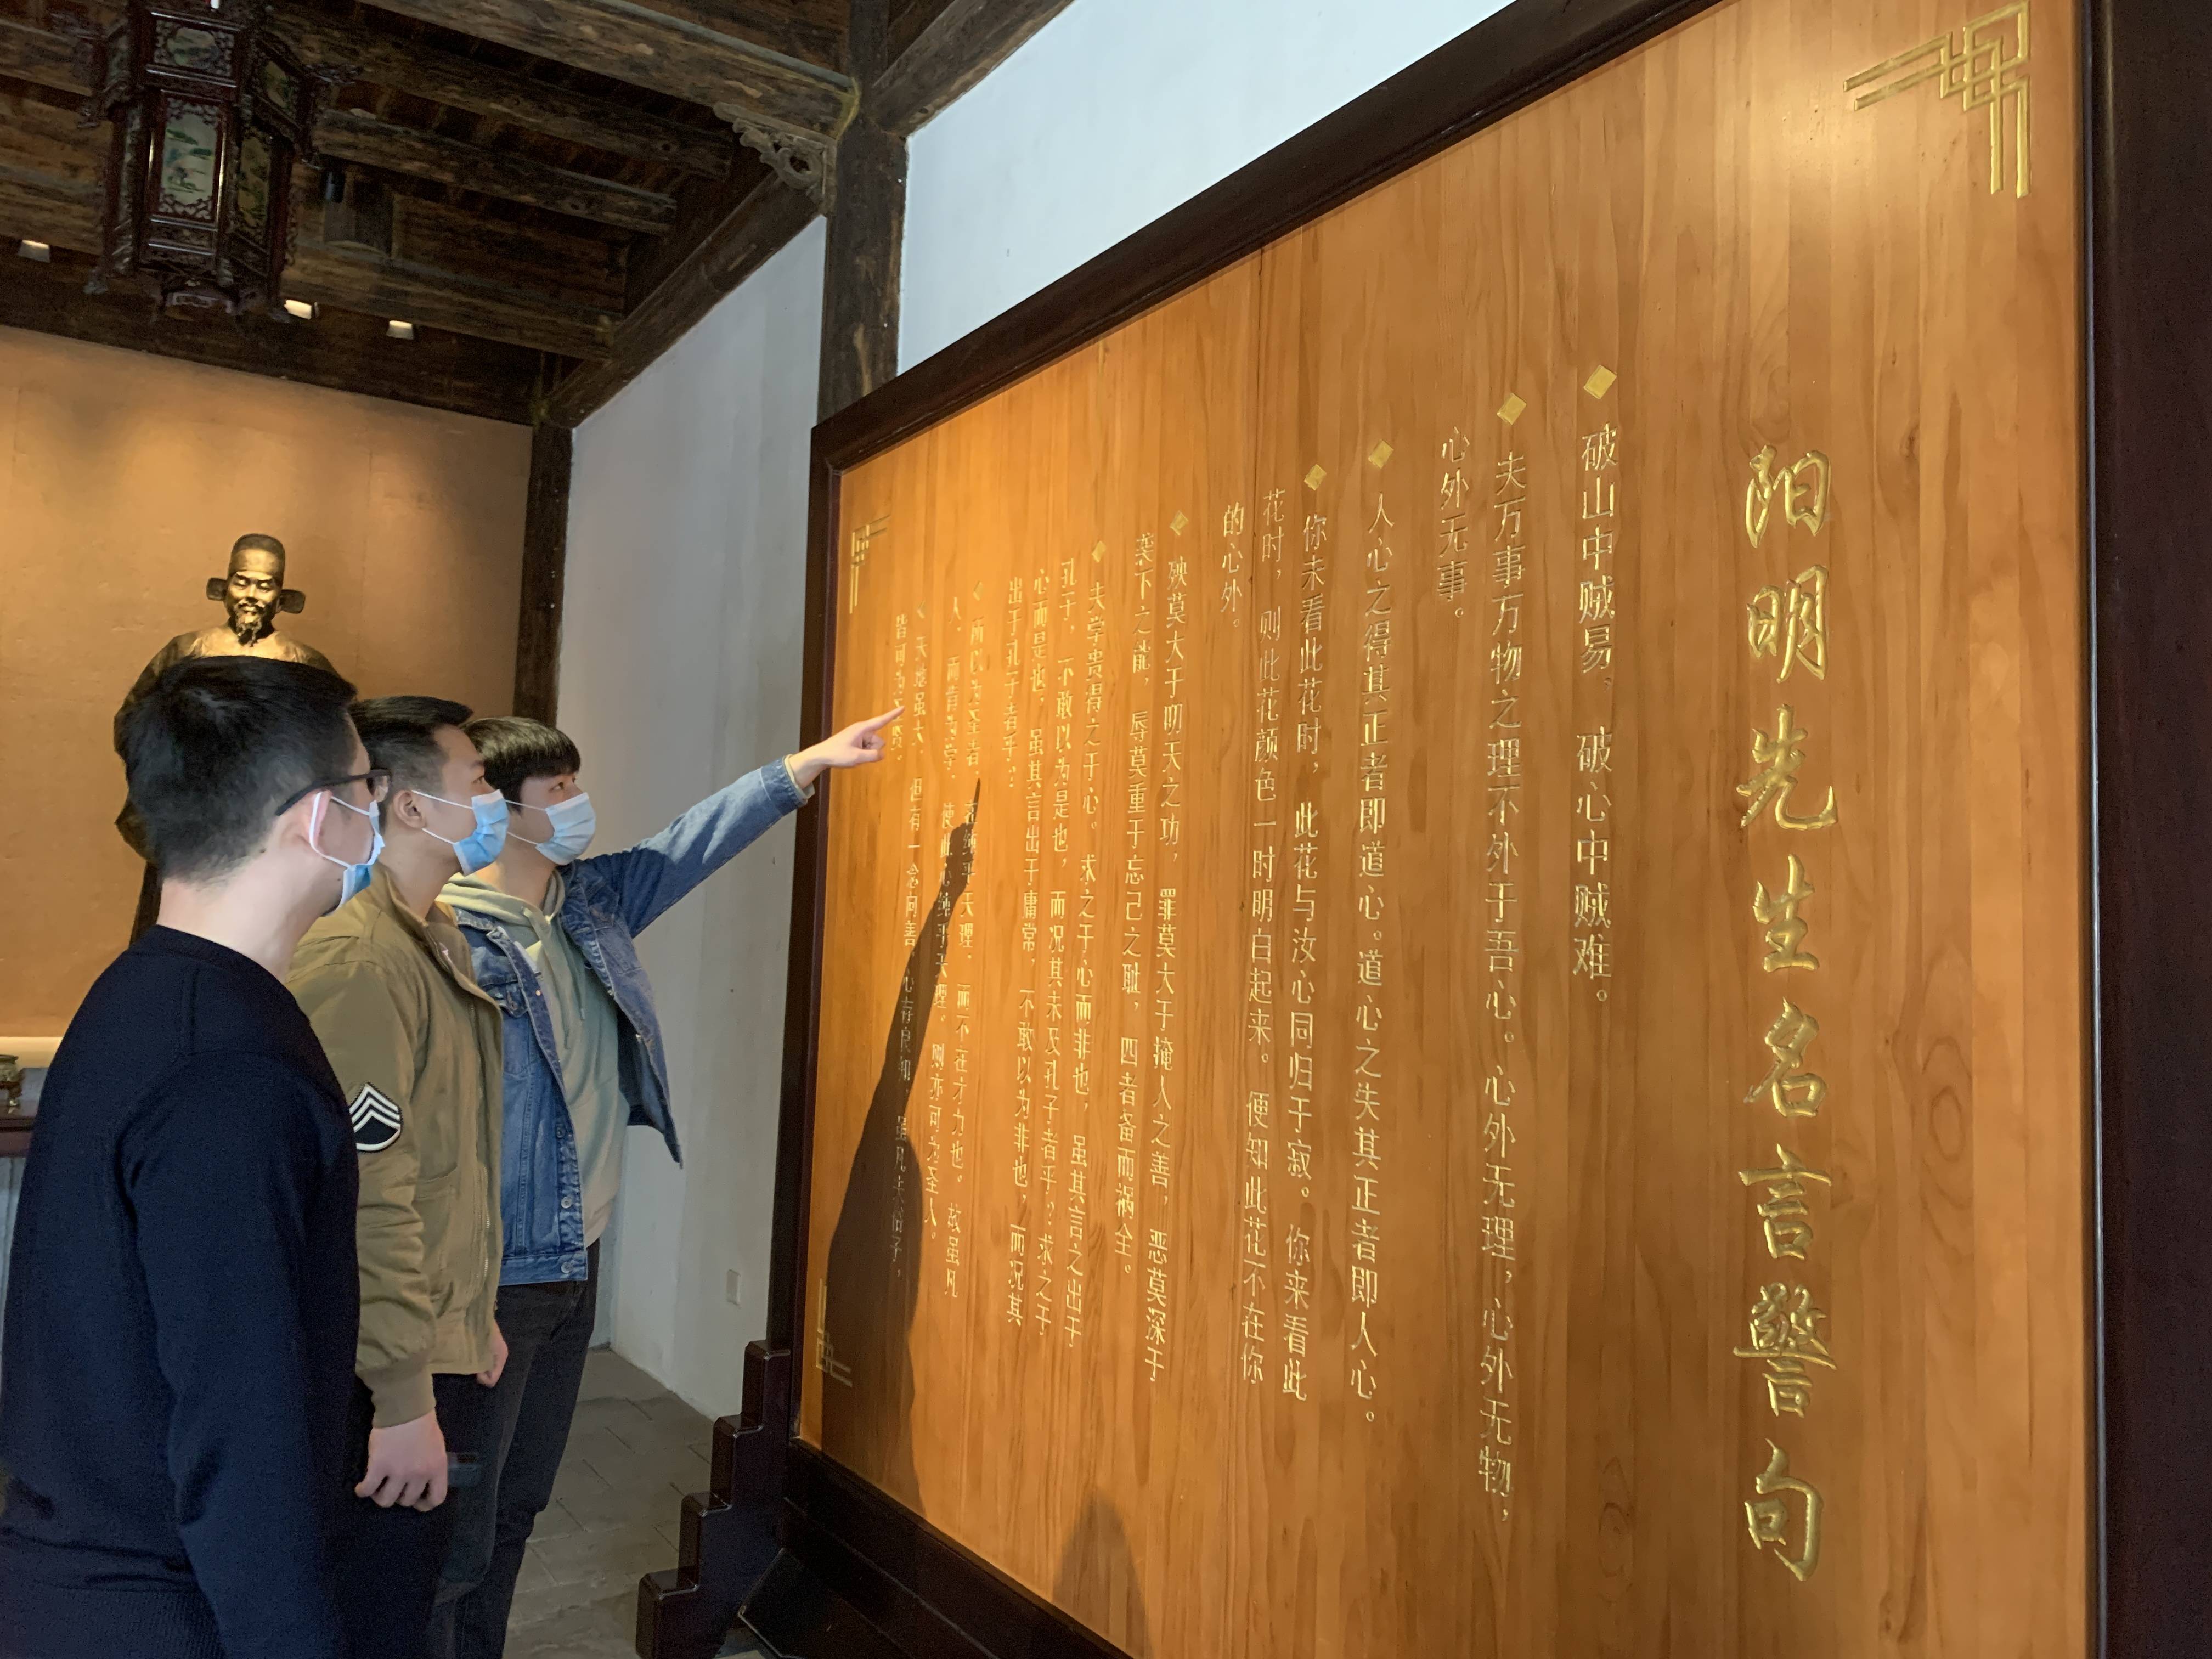 阳明先生名言警句
破山中贼易，破心中贼难。
夫万事万物之理不外于吾心。心外无理，心外无物，
心外无事。
人心之得其正者即道心。道心之失其正者即人心。
你未看此花时，此花与汝心同归于寂。你来看此
花时，则此花颜色一时明白起来。便知此花不在你
的心外。
殃莫大于明天之功，罪莫大于掩人之善，恶莫深于
袭下之能，辱莫重于忘己之耻，四者备而祸全。
夫学贵得之于心。求之于心而非也，虽其言之出于
孔子，不敢以为是也，而况其未及孔子者乎？求之于
心而是也，虽其言出于庸常，不敢以为非也，而况其
出于孔子者乎？
所以为圣者，在纯乎天理，而不在才力也。故虽凡
人，而肯为学，使此心纯乎天理。则亦可为圣人。
天地虽大，但有一念向善，心存良知，虽凡夫俗子，
皆可为圣贤。